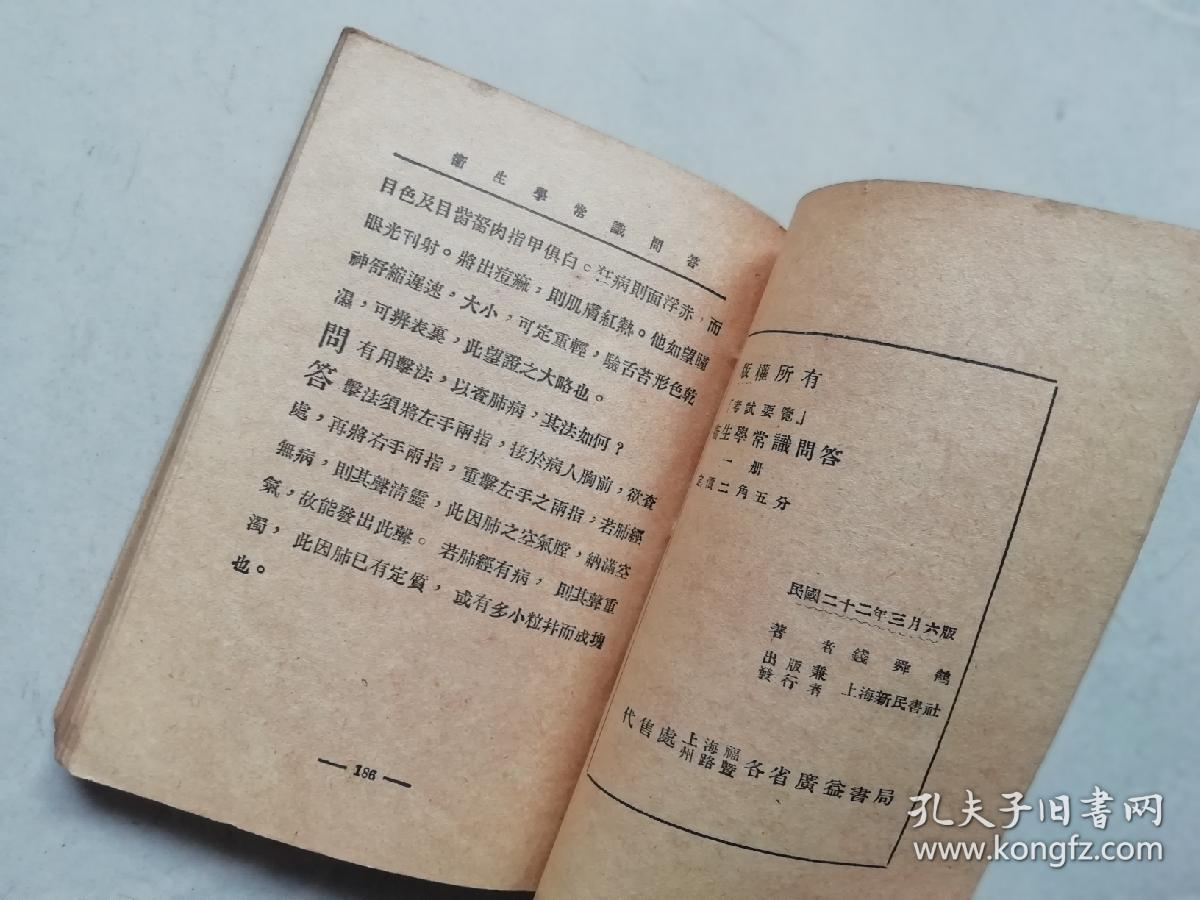 衞生學常識問答
目色及目眥胬肉指甲俱白。狂病則面浮赤，而
眼光刊射。將出痘痲，則肌膚紅熱。他如望瞳
神舒縮遲速，大小，可定重輕，驗舌苔形色乾
濕，可辨表裏，此望證之大略也。
問 有用擊法，以查肺病，其法如何？
答 擊法須將左手兩指，接於病人胸前，欲查
處，再將右手兩指，重擊左手之兩指，若肺經
無病，則其聲清靈，此因肺之空氣膛，納滿空
氣，故能發出此聲。若肺經有病，則其聲重
濁，此因肺已有定質，或有多小粒幷而成塊
也。
186
版權所有
「考試要覽」
衞生學常識問答
一册
定價二角五分
民國二十二年三月六版
著者錢舜鶴
出版兼發行者 上海新民書社
代售處 上海福州路暨各省廣益書局
孔夫子旧书网
www.kongfz.com